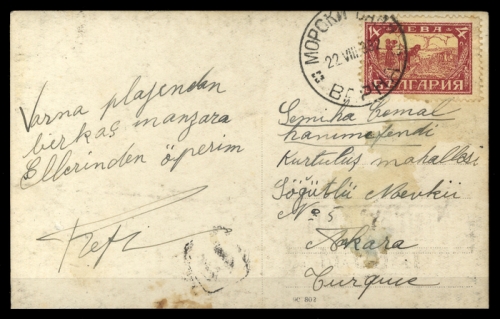 Varna plajından
birkaç manzara
Ellerinden öperim
Refi
МОРСКИ
22 VIII
ЛЕВА
БЪЛГАРИЯ
Semiha Cemal
hanımefendi
Kurtuluş mahallesi
Söğütlü Mevkii
No 5
Ankara
Turquie